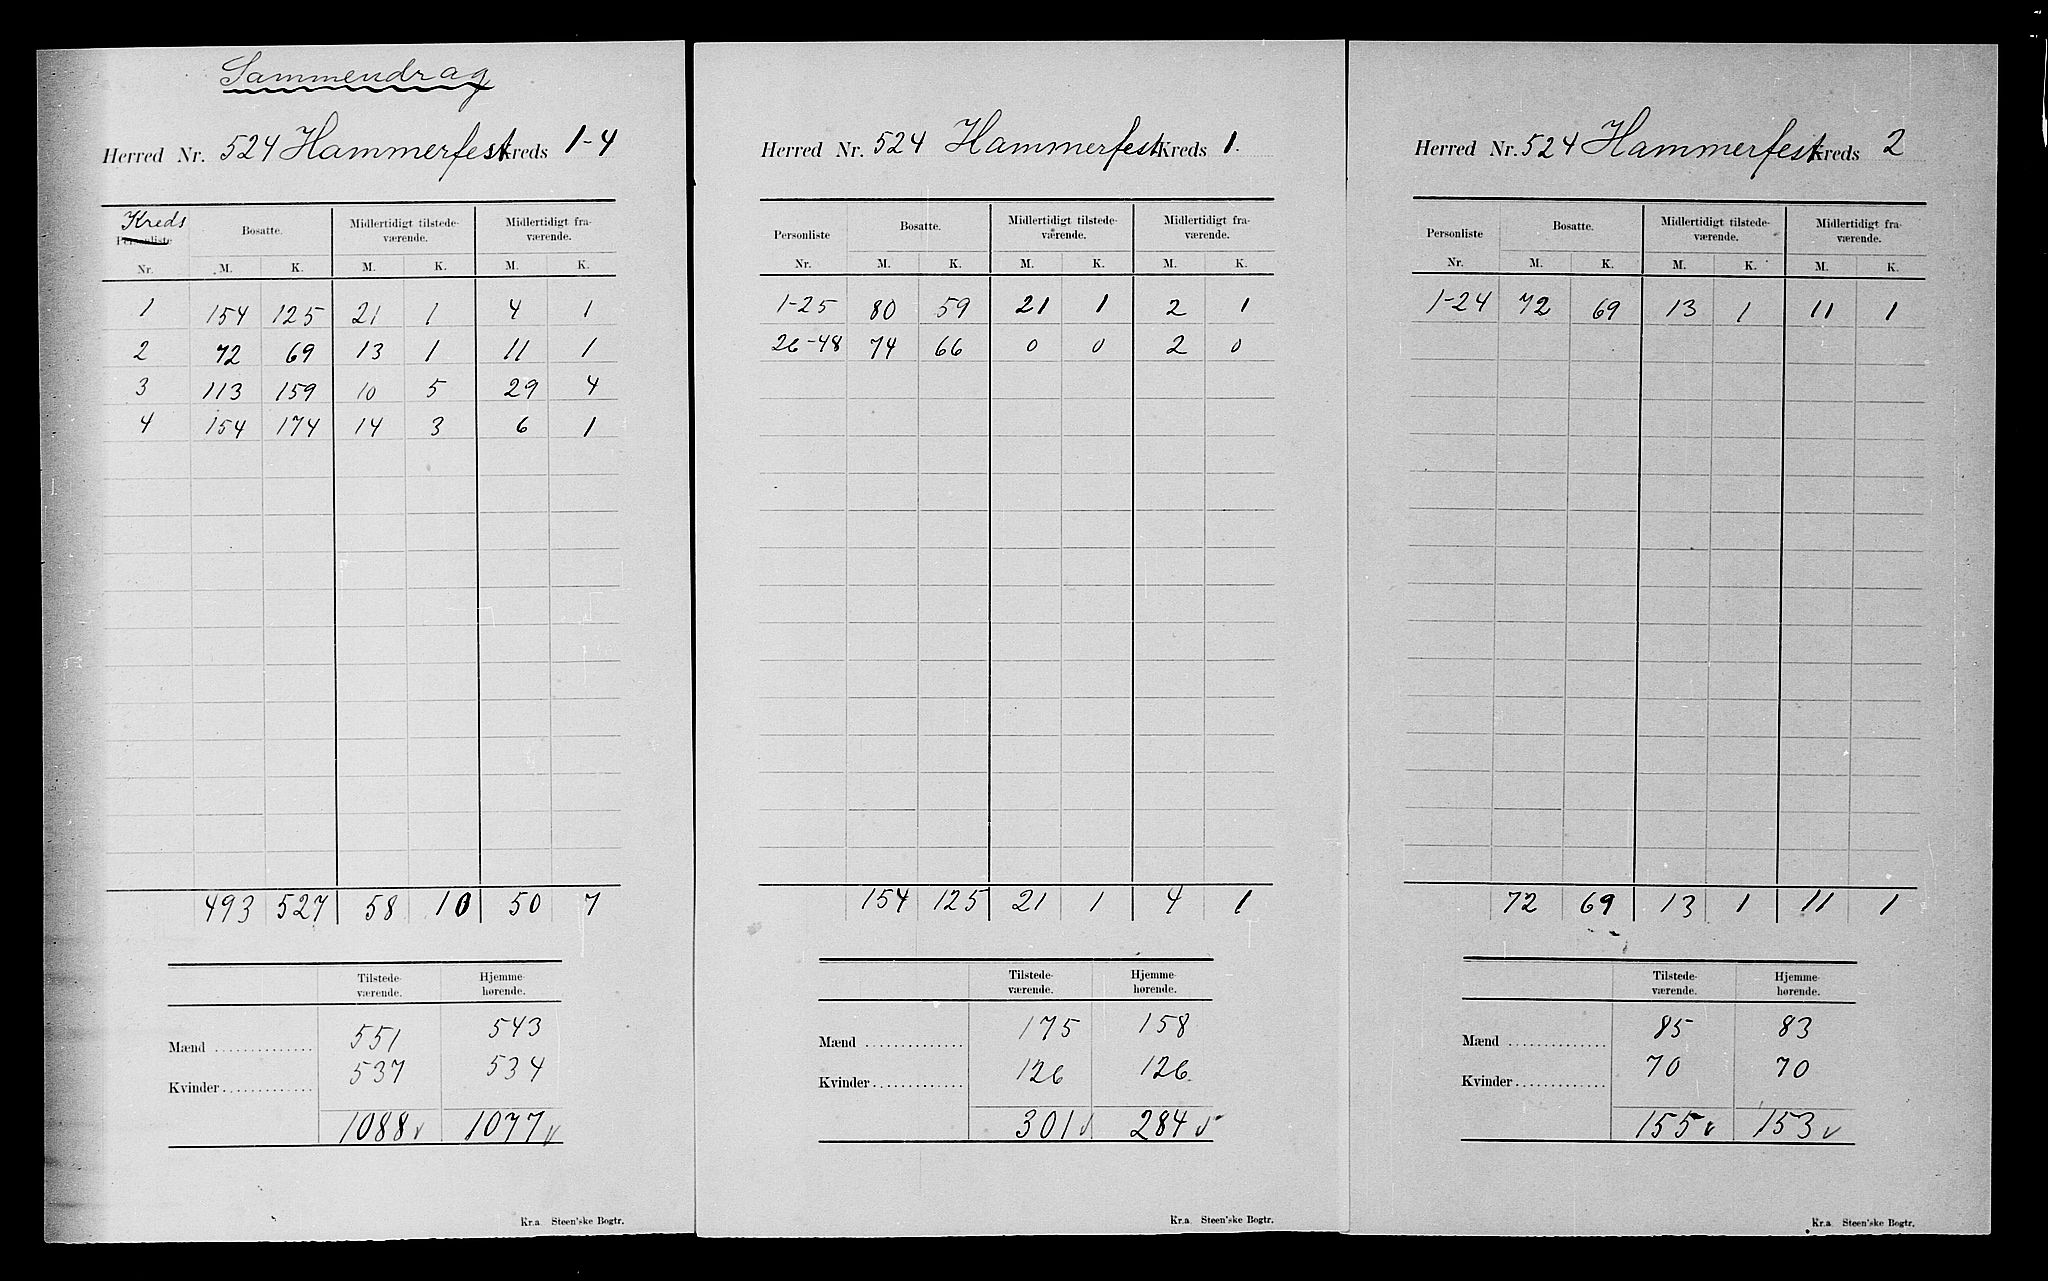 Sammendrag
Herred Nr. 524 Hammerfest Kreds 1-4
Kreds
Personliste Bosatte. Midlertidigt tilstede- Midlertidigt fra-
værende. værende.
Nr. M. K. M. K. M. K.
1 154 125 21 1 4 1
2 72 69 13 1 11 1
3 113 159 10 5 29 4
4 154 174 14 3 6 1
493 527 58 10 50 7
Tilstede- Hjemme-
værende. hørende.
Mænd .............. 551 543
Kvinder ............. 537 534
1088 v 1077 v
Kr.a. Steen'ske Bogtr.
Herred Nr. 524 Hammerfest Kreds 1.
Personliste Bosatte. Midlertidigt tilstede- Midlertidigt fra-
værende. værende.
Nr. M. K. M. K. M. K.
1-25 80 59 21 1 2 1
26-48 74 66 0 0 2 0
154 125 21 1 4 1
Tilstede- Hjemme-
værende. hørende.
Mænd .............. 175 158
Kvinder ............. 126 126
301 v 284 v
Kr.a. Steen'ske Bogtr.
Herred Nr. 524 Hammerfest Kreds 2
Personliste Bosatte. Midlertidigt tilstede- Midlertidigt fra-
værende. værende.
Nr. M. K. M. K. M. K.
1-24 72 69 13 1 11 1
72 69 13 1 11 1
Tilstede- Hjemme-
værende. hørende.
Mænd .............. 85 83
Kvinder ............. 70 70
155 v 153 v
Kr.a. Steen'ske Bogtr.